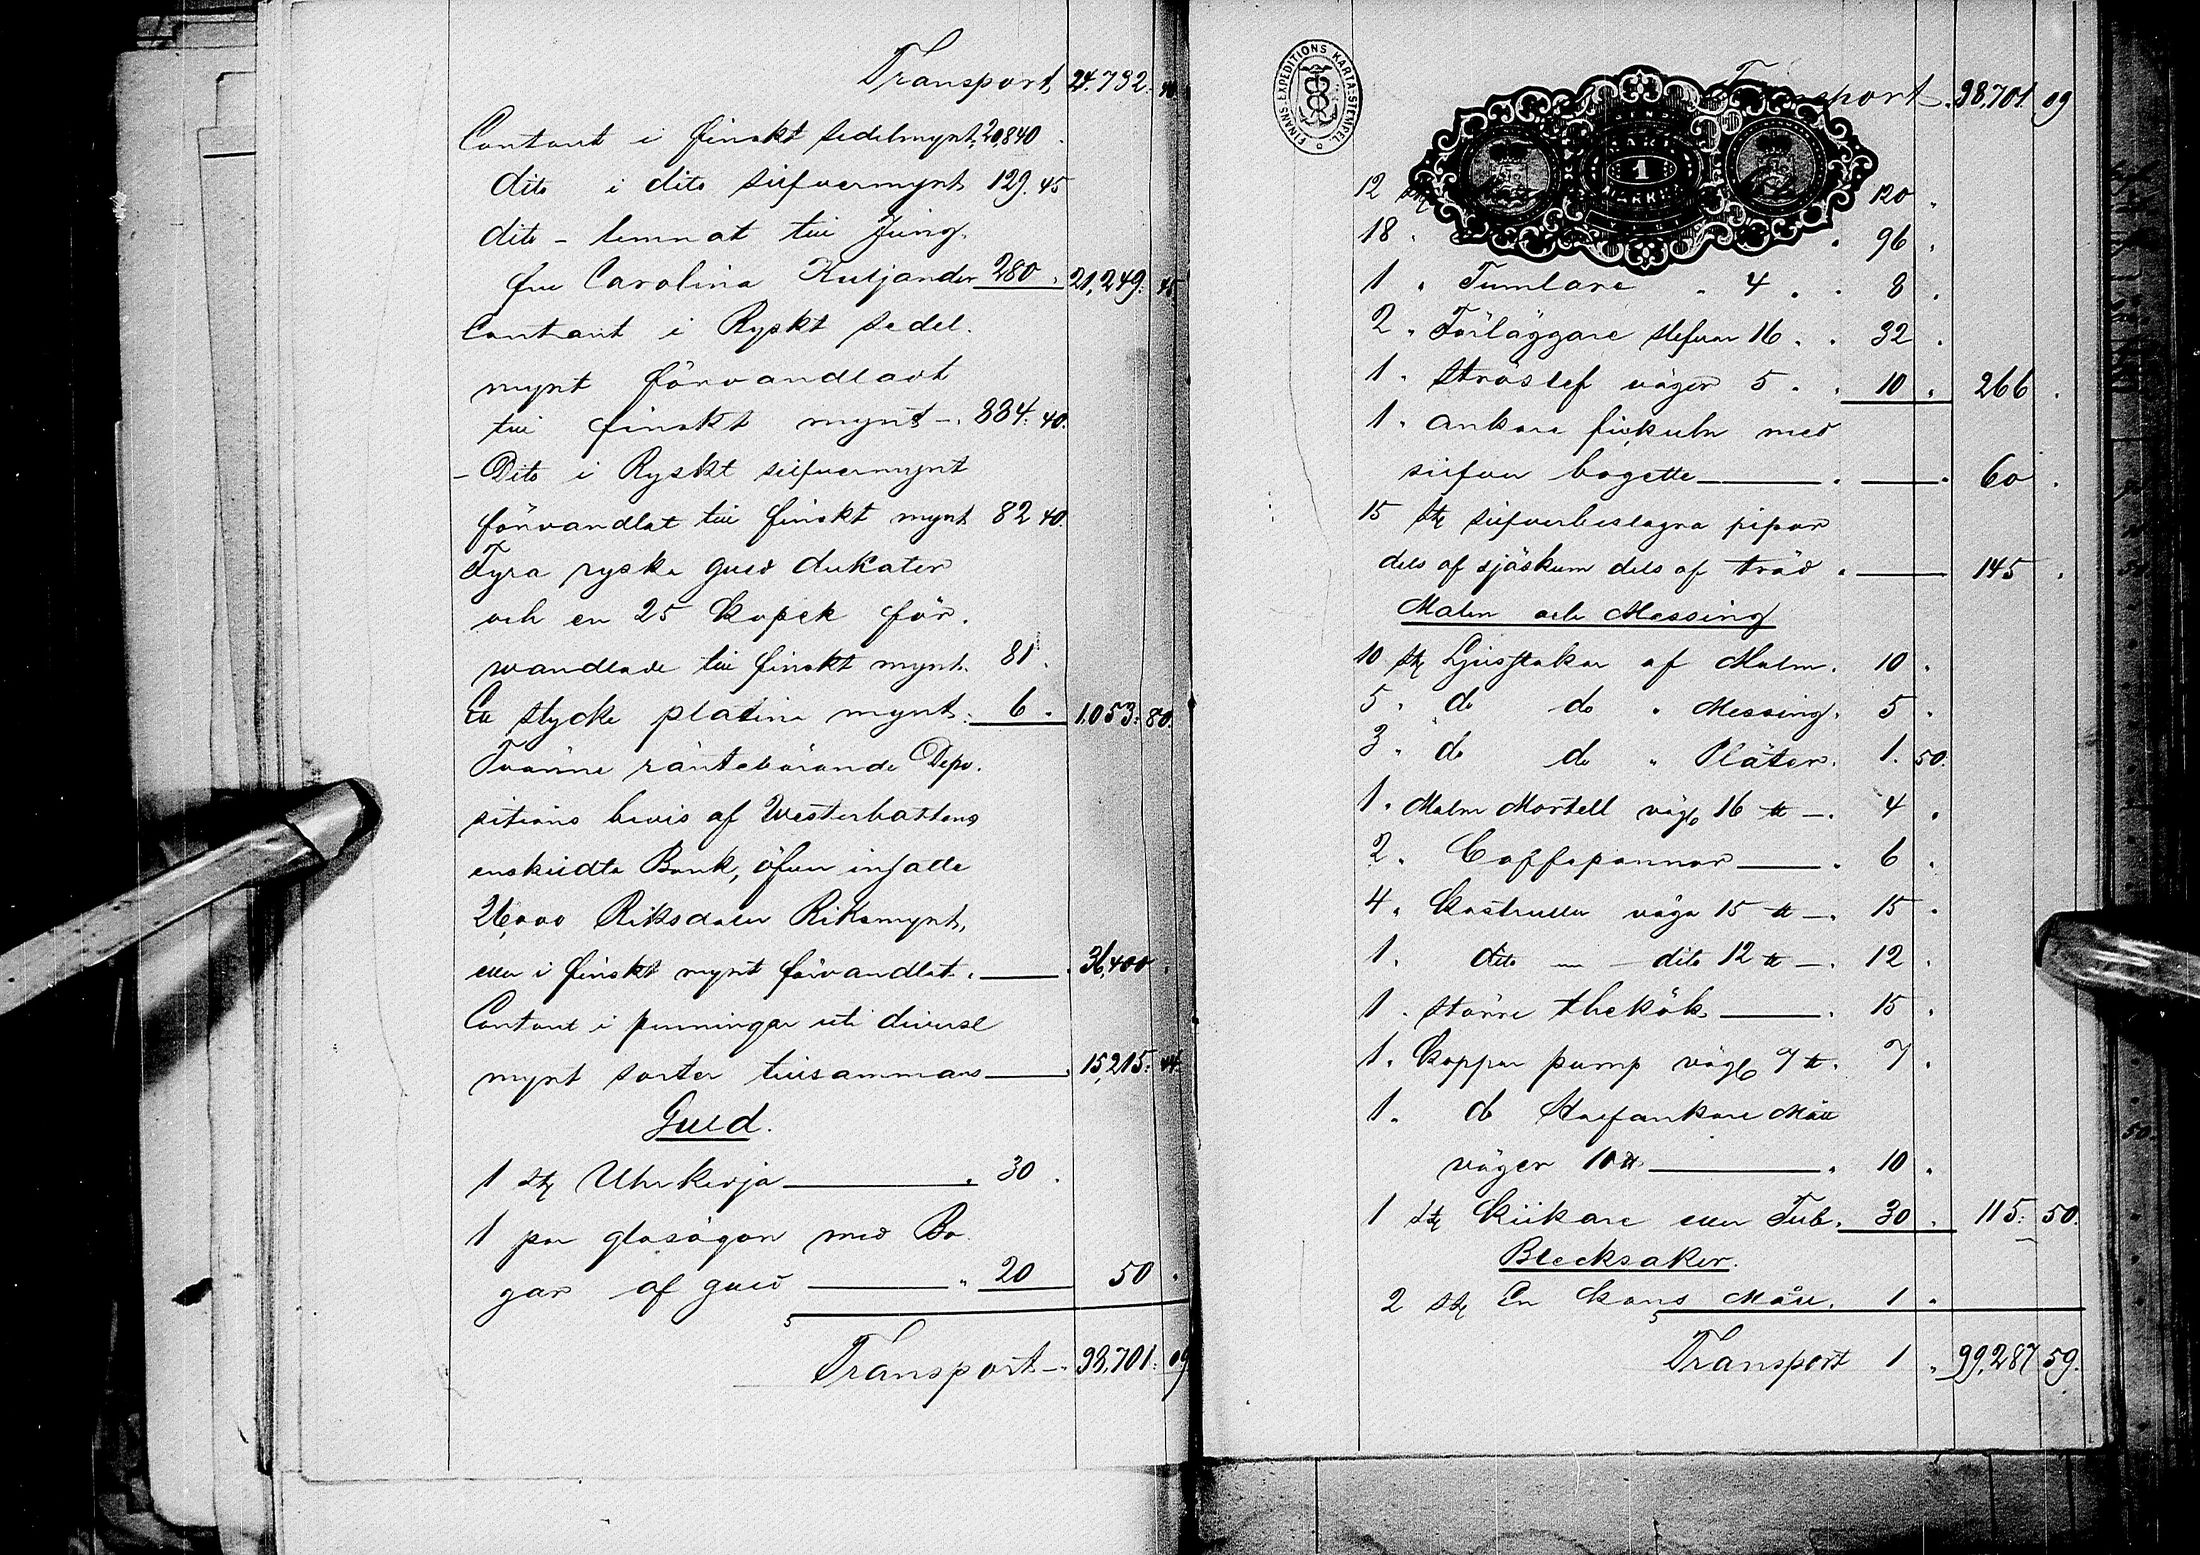 Transport 24.732. 40
Contant i finskt sedelmynt, 20,840 .
dito i dito silfvermynt 129. 45
dito - lemnat till Jung-
fru Carolina Kuljander 280 . 21,249. 45
Contant i Ryskt sedel-
mynt förvandladt
till finskt mynt -. 884. 40.
- Dito i Ryskt silfvermynt
förvandlat till finskt mynt 82 40.
Fyra ryska guld dukater
och en 25 Kopek för-
wandlade till finskt mynt. 81 .
Ett stycke platina mynt. 6 . 1,053. 80.
Tvänne räntebärande Depo-
sitions bevis af Westerbottens
enskildta Bank, öfver inalles
26,000 Riksdaler Riksmynt,
eller i finskt mynt förvandlat. . 36,400 .
Contant i penningar uti diverse
mynt sorter tillsammans . 15,215. 44.
Guld.
1 st Uhrkedja . 30 .
1 par glasögon med Bo-
gar af guld . 20 50 .
Transport -. 98,701. 09
FINANS-EXPEDITIONS KARTA-STEMPEL
Transport . 98,701 09
1
12 st 120 .
18 . . 96 .
1 . Tumlare . 4 . . 8 .
2 . Förläggare slefvar 16 . . 32 .
1 . Ströslef väger 5 . . 10 . 266 .
1 . ankare med
silfver bogette . . 60 .
15 st silfverbeslagna pipor
dels af sjöskum dels af träd . 145 .
Malm och Messing
10 st Ljusstakar af Malm . 10 .
5 . do do . Messing . 5 .
3 . do do . Pläter . 1. 50.
1 . Malm Mortell väg 16 ℔ -. 4 .
2 . Caffepannor . 6 .
4 . Kastruller väga 15 ℔ -. 15 .
1 . dito - dito 12 ℔ -. 12 .
1 . större thekök . 15 .
1 . Koppar pump väg 7 ℔. 7 .
1 . do Halfankare Mått
väger 10 ℔ . 10 .
1 st Kiikare eller Tub. 30 . 115. 50.
Blecksaker.
2 st En Kans Mått. 1 .
Transport 1 . 99,287 59.